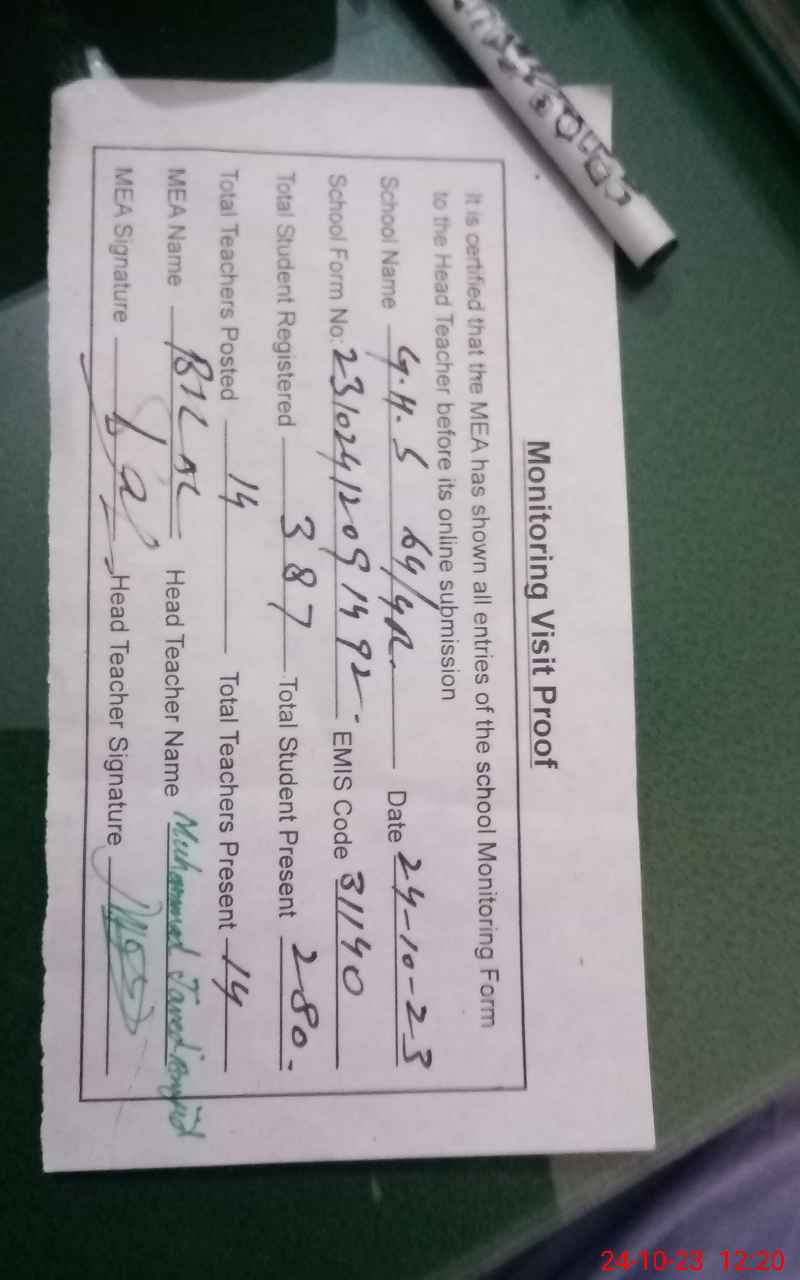 Monitoring Visit Proof
It is certified that the MEA has shown all entries of the school Monitoring Form
to the Head Teacher before its online submission
School Name G.H.S 64/4R. Date 24-10-23
School Form No: 23102412091492. EMIS Code 31140
Total Student Registered 387 Total Student Present 280.
Total Teachers Posted 14 Total Teachers Present 14
MEA Name BILAL Head Teacher Name Muhammad Javed Amjid
MEA Signature Head Teacher Signature
24-10-23 12:20